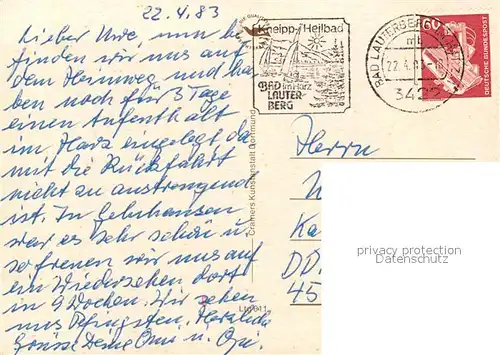 22.4.83
Lieber Uwe, nun be
finden wir uns auf
dem Heimweg und ha
ben noch für 3 Tage
einen Aufenthalt
im Harz eingelegt, da
mit die Rückfahrt
nicht zu anstrengend
ist. In Gelnhausen
war es sehr schön u.
so freuen wir uns auf
ein Wiedersehen dort
in 9 Wochen. Wir sehen
uns Pfingsten. Herzliche
Grüsse Deine Omi u. Opi.
Cramers Kunstanstalt Dortmund
Kneipp-Heilbad
BAD im Harz
LAUTER-
BERG
BAD LAUTERBERG
22.4.83
3422
60
DEUTSCHE BUNDESPOST
Herrn
Ka
DD.
45
privacy protection
www.ansichtskartenversand.com